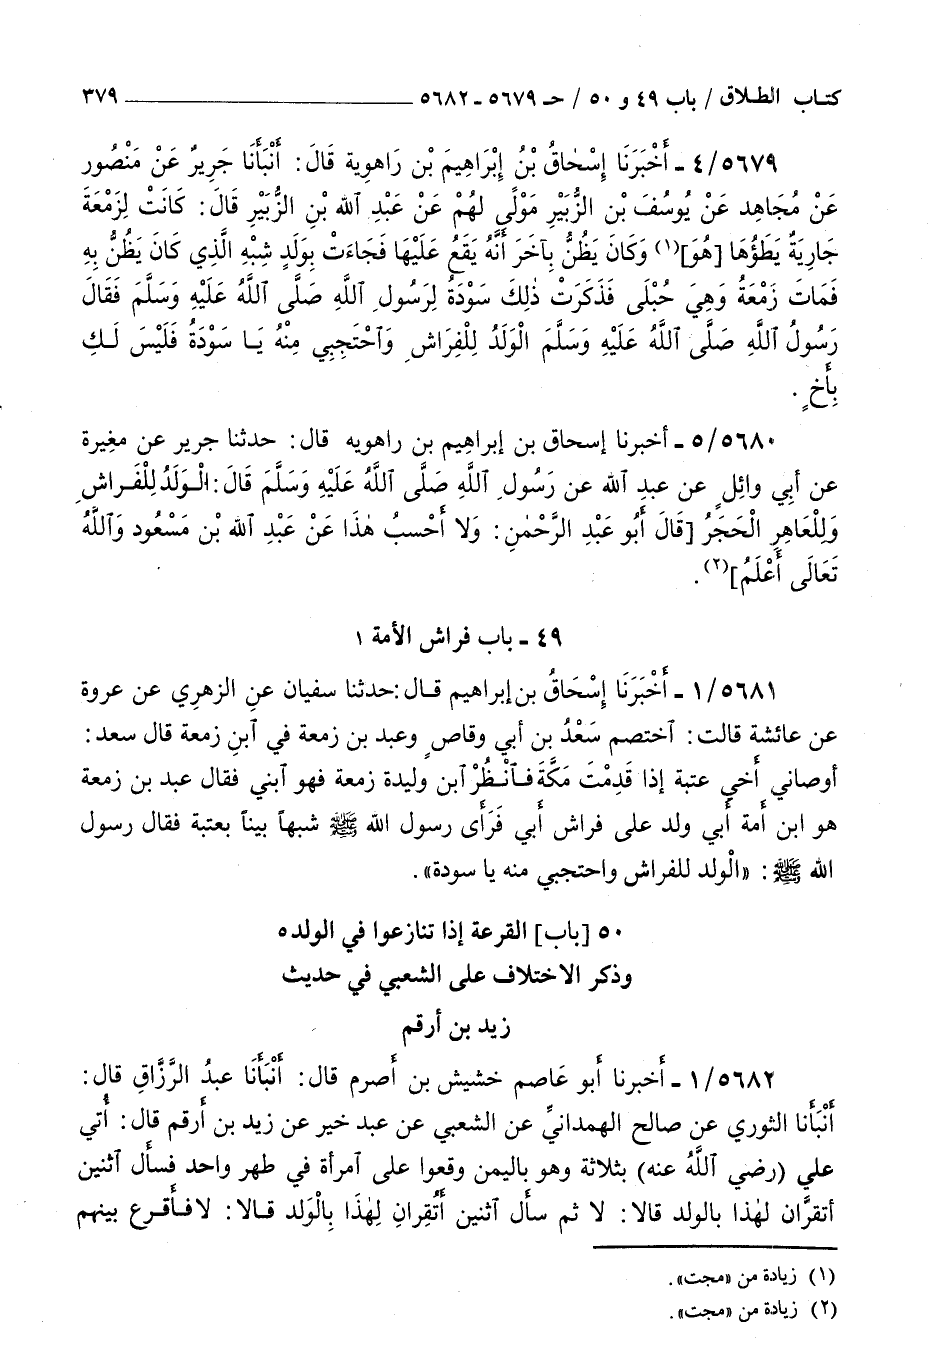 كتاب الطلاق / باب ٤٩ و ٥٠ / حـ ٥٦٧٩ - ٥٦٨٢ ٣٧٩
٤/٥٦٧٩ - أَخْبَرَنَا إِسْحَاقُ بْنُ إِبْرَاهِيمَ بْنِ رَاهوية قَالَ: أَنْبَأَنَا جَرِيرٌ عَنْ مَنْصُورٍ
عَنْ مُجَاهِد عَنْ يُوسُفَ بْنِ الزُّبَيْرِ مَوْلًى لهُمْ عَنْ عَبْدِ الله بْنِ الزُّبَيْرِ قَالَ: كَانَتْ لِزَمْعَةَ
جارِيَةٌ يَطَؤُهَا [هُوَ](١) وَكَانَ يَظُنُّ بِآخَرَ أَنَّهُ يَقَعُ عَلَيْهَا فَجَاءَتْ بِوَلَدٍ شِبْهِ الَّذِي كَانَ يَظُنُّ بِهِ
فَمَاتَ زَمْعَةُ وَهِيَ حُبْلَى فَذَكَرَتْ ذٰلِكَ سَوْدَةُ لِرَسُولِ اللَّهِ صَلَّى اللَّهُ عَلَيْهِ وَسَلَّمَ فَقَالَ
رَسُولُ اللَّهِ صَلَّى اللَّهُ عَلَيْهِ وَسَلَّمَ الْوَلَدُ لِلْفِرَاشِ وَاحْتَجِبِي مِنْهُ يَا سَوْدَةُ فَلَيْسَ لَكِ
بِأَخٍ .
٥/٥٦٨٠ - أخبرنا إسحاق بن إبراهيم بن راهويه قال: حدثنا جرير عن مغيرة
عن أبي وائِلٍ عن عبدِ الله عن رَسُولِ اللَّهِ صَلَّى اللَّهُ عَلَيْهِ وَسَلَّمَ قَالَ: الْوَلَدُ لِلْفَراشِ
وَلِلْعَاهِرِ الْحَجَرُ [قَالَ أَبُو عَبْدِ الرَّحْمٰنِ: وَلا أَحْسبُ هٰذَا عَنْ عَبْدِ الله بْنِ مَسْعُود وَاللَّهُ
تَعَالَى أَعْلَمُ](٢).
٤٩ - باب فراش الأمة ١
١/٥٦٨١ - أَخْبَرَنَا إِسْحَاقُ بن إبراهيم قال: حدثنا سفيان عنِ الزهري عن عروة
عن عائشة قالت: اختصم سَعْدُ بن أبي وقاصٍ وعبد بن زمعة في ابنِ زمعة قال سعد:
أوصاني أخي عتبة إذا قدِمْتَ مَكَّةَ فَانْظُرْ ابن وليدة زمعة فهو ابني فقال عبد بن زمعة
هو ابن أمة أبي ولد على فراش أبي فَرَأَى رسول الله ﷺ شبهاً بيناً بعتبة فقال رسول
الله ﷺ: «الْولد للفراش واحتجبي منه يا سودة».
٥٠ [باب] القرعة إذا تنازعوا في الولد٥
وذكر الاختلاف على الشعبي في حديث
زيد بن أرقم
١/٥٦٨٢ - أخبرنا أبو عَاصم خشيش بن أصرم قال: أَنْبَأَنَا عبدُ الرَّزَّاقِ قال:
أَنْبَأَنا الثوري عن صالح الهمدانيِّ عن الشعبي عن عبد خير عن زيد بن أرقم قال: أُتي
علي (رضي اللَّهُ عنه) بثلاثة وهو باليمن وقعوا على امرأة في طهر واحد فسأل اثنين
أتقرَّان لهٰذا بالولد قالا: لا ثم سأل اثنين أَتُقِرانِ لِهٰذَا بِالْوَلد قالا: لا فأقرع بينهم
(١) زيادة من «مجت».
(٢) زيادة من «مجت».